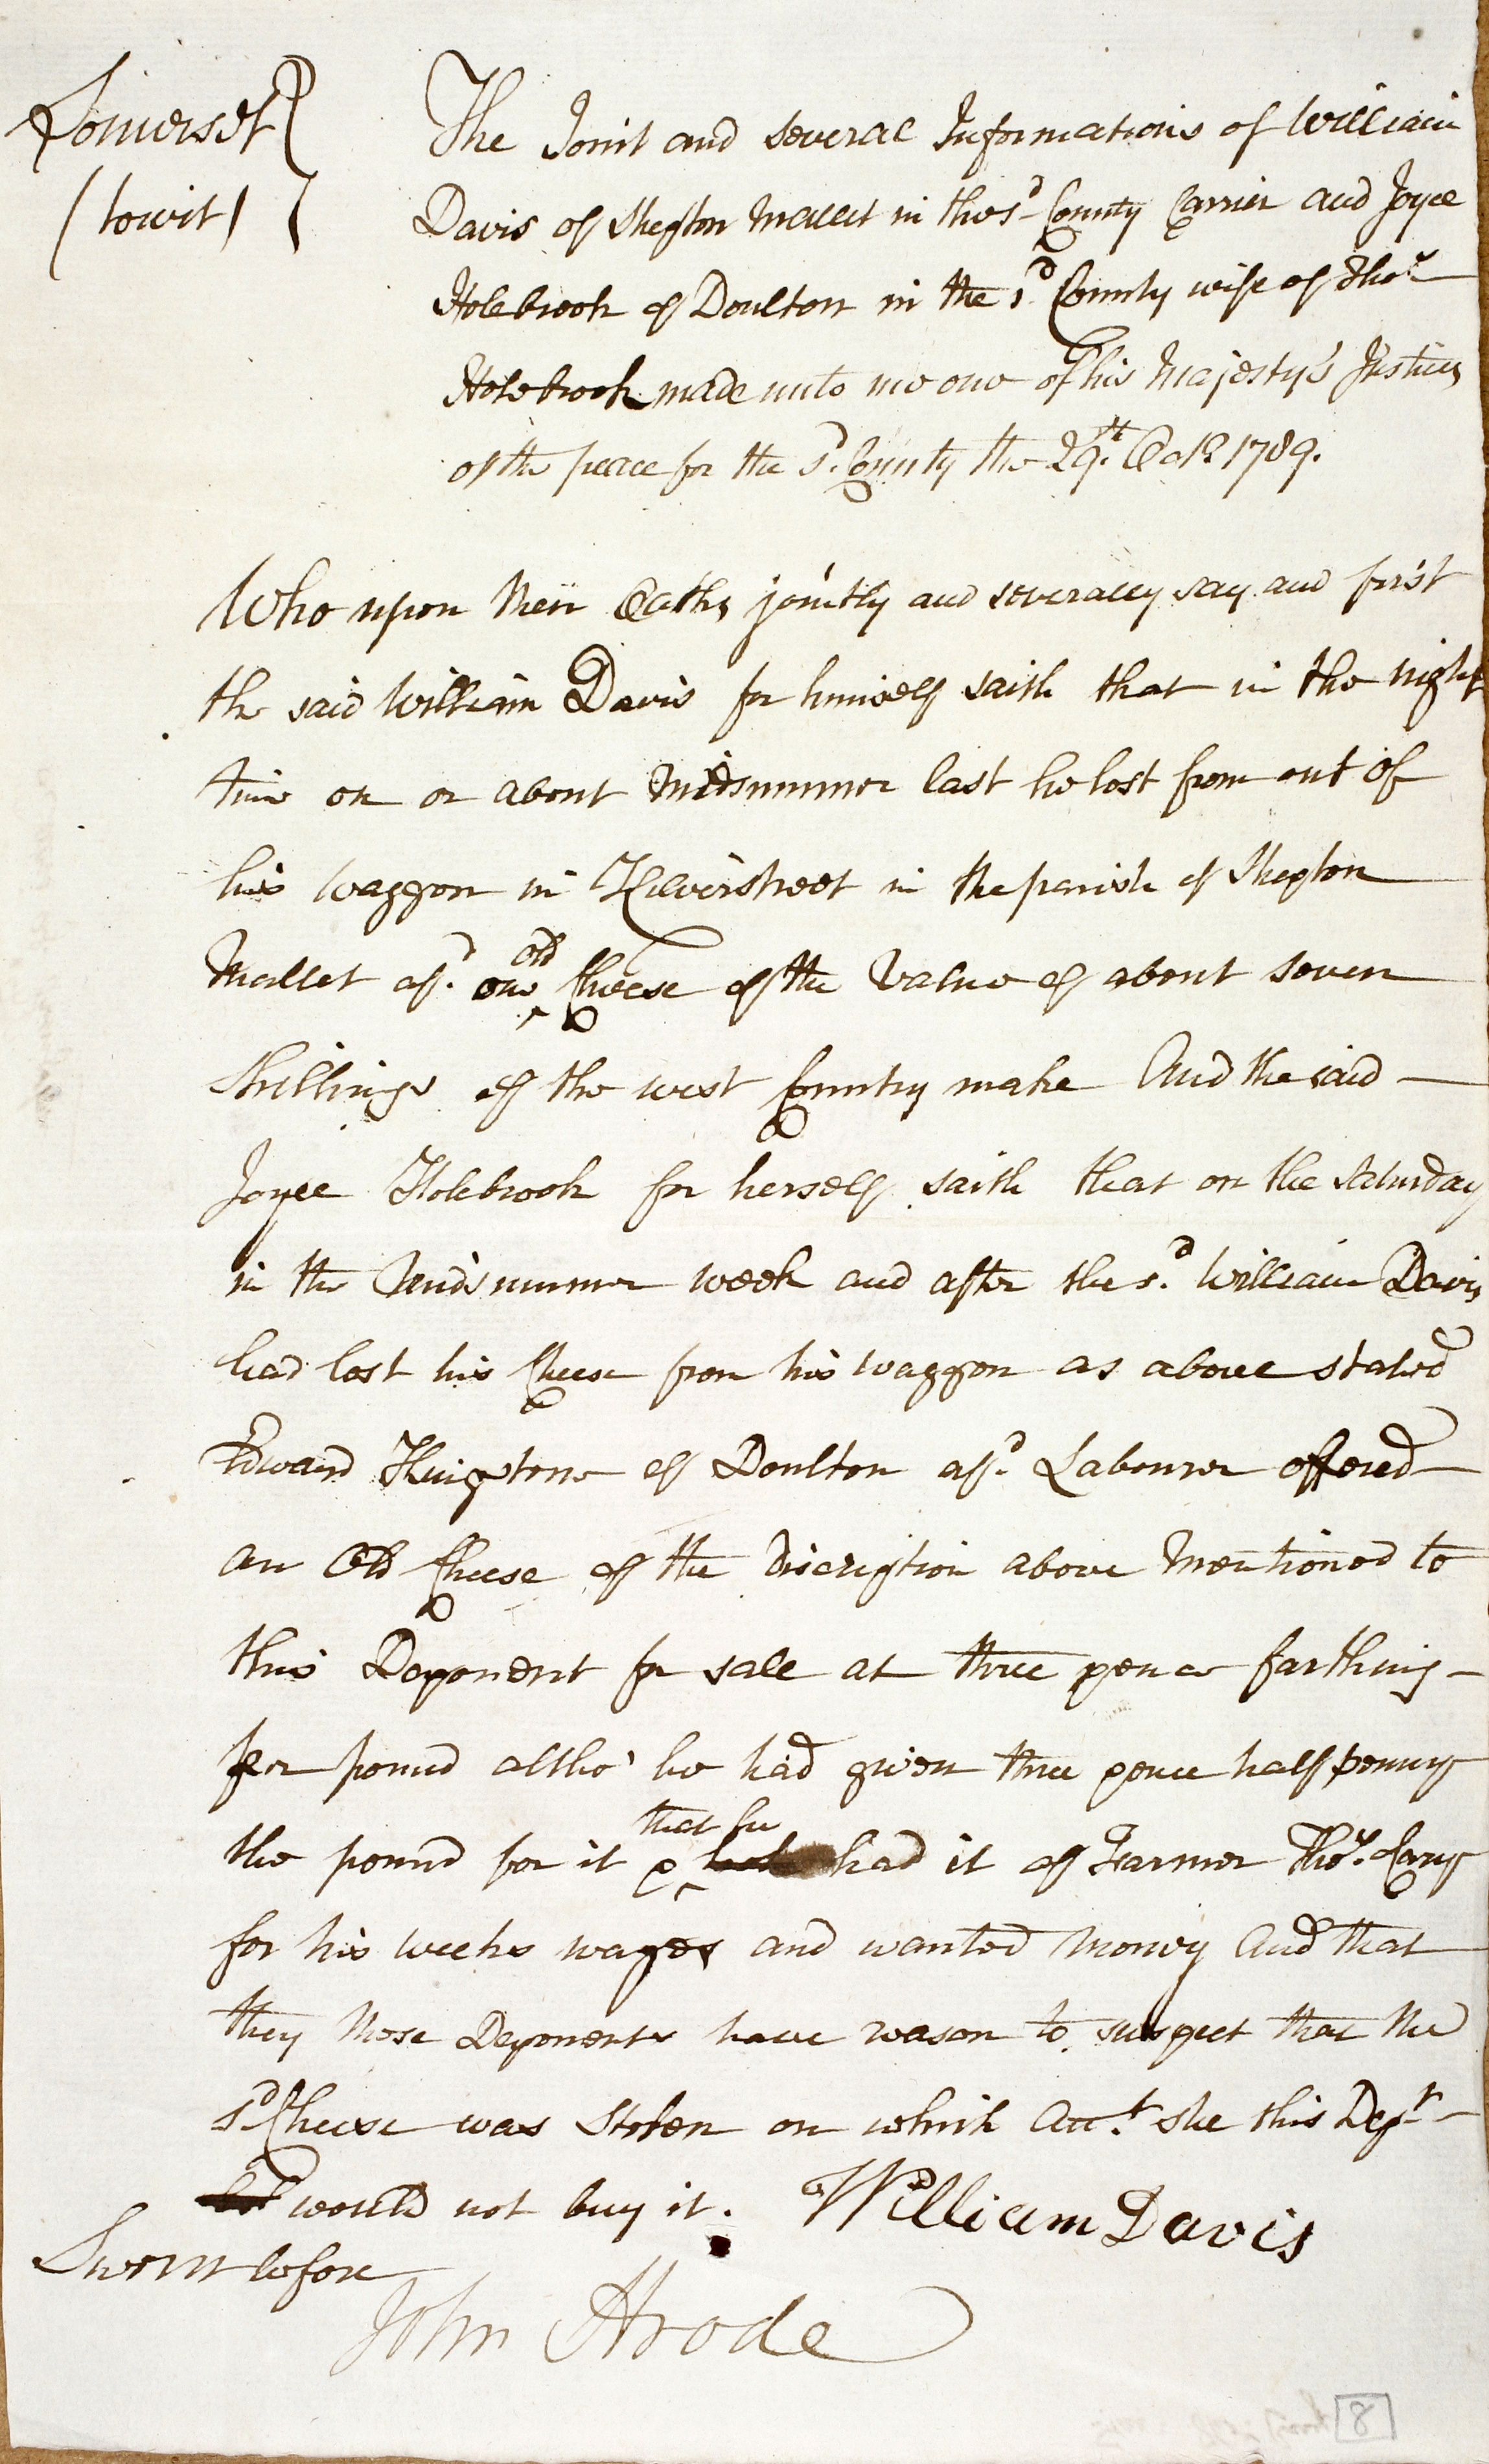 Somerset
(towit)
The Joint and several Informations of William
Davis of Shepton Mallet in the s.d County Carrier and Joyce
Holebrook of Doulton in the s.d County wife of Tho.s
Holebrook made unto me one of his Majesty's Justices
of the peace for the s.d County the 29.th Oct.r 1789.
Who upon their Oaths jointly and severally say and first
the said William Davis for himself saith that in the night
time on or about Midsummer last he lost from out of
his waggon in Kilverstreet in the parish of Shepton
old
Mallet afs.d one Cheese of the value of about seven
Shillings of the west Country make And the said
Joyce Holebrook for herself saith that on the Saturday
in the Midsummer week and after the s.d William Davis
had lost his Cheese from his waggon as above stated
Edward Kingstone of Doulton afs.d Labourer offered
an Old Cheese of the discription above mentioned to
this Deponent for sale at three pence farthing
per pound altho' he had given three pence half penny
that he
the pound for it & had it of Farmer Tho.s Cary
for his weeks wages and wanted money And that
they these Deponents have reason to suspect that the
s.d Cheese was stolen on which Acc.t she this Dep.t
would not buy it. William Davis
Sworn before
John Strode
8